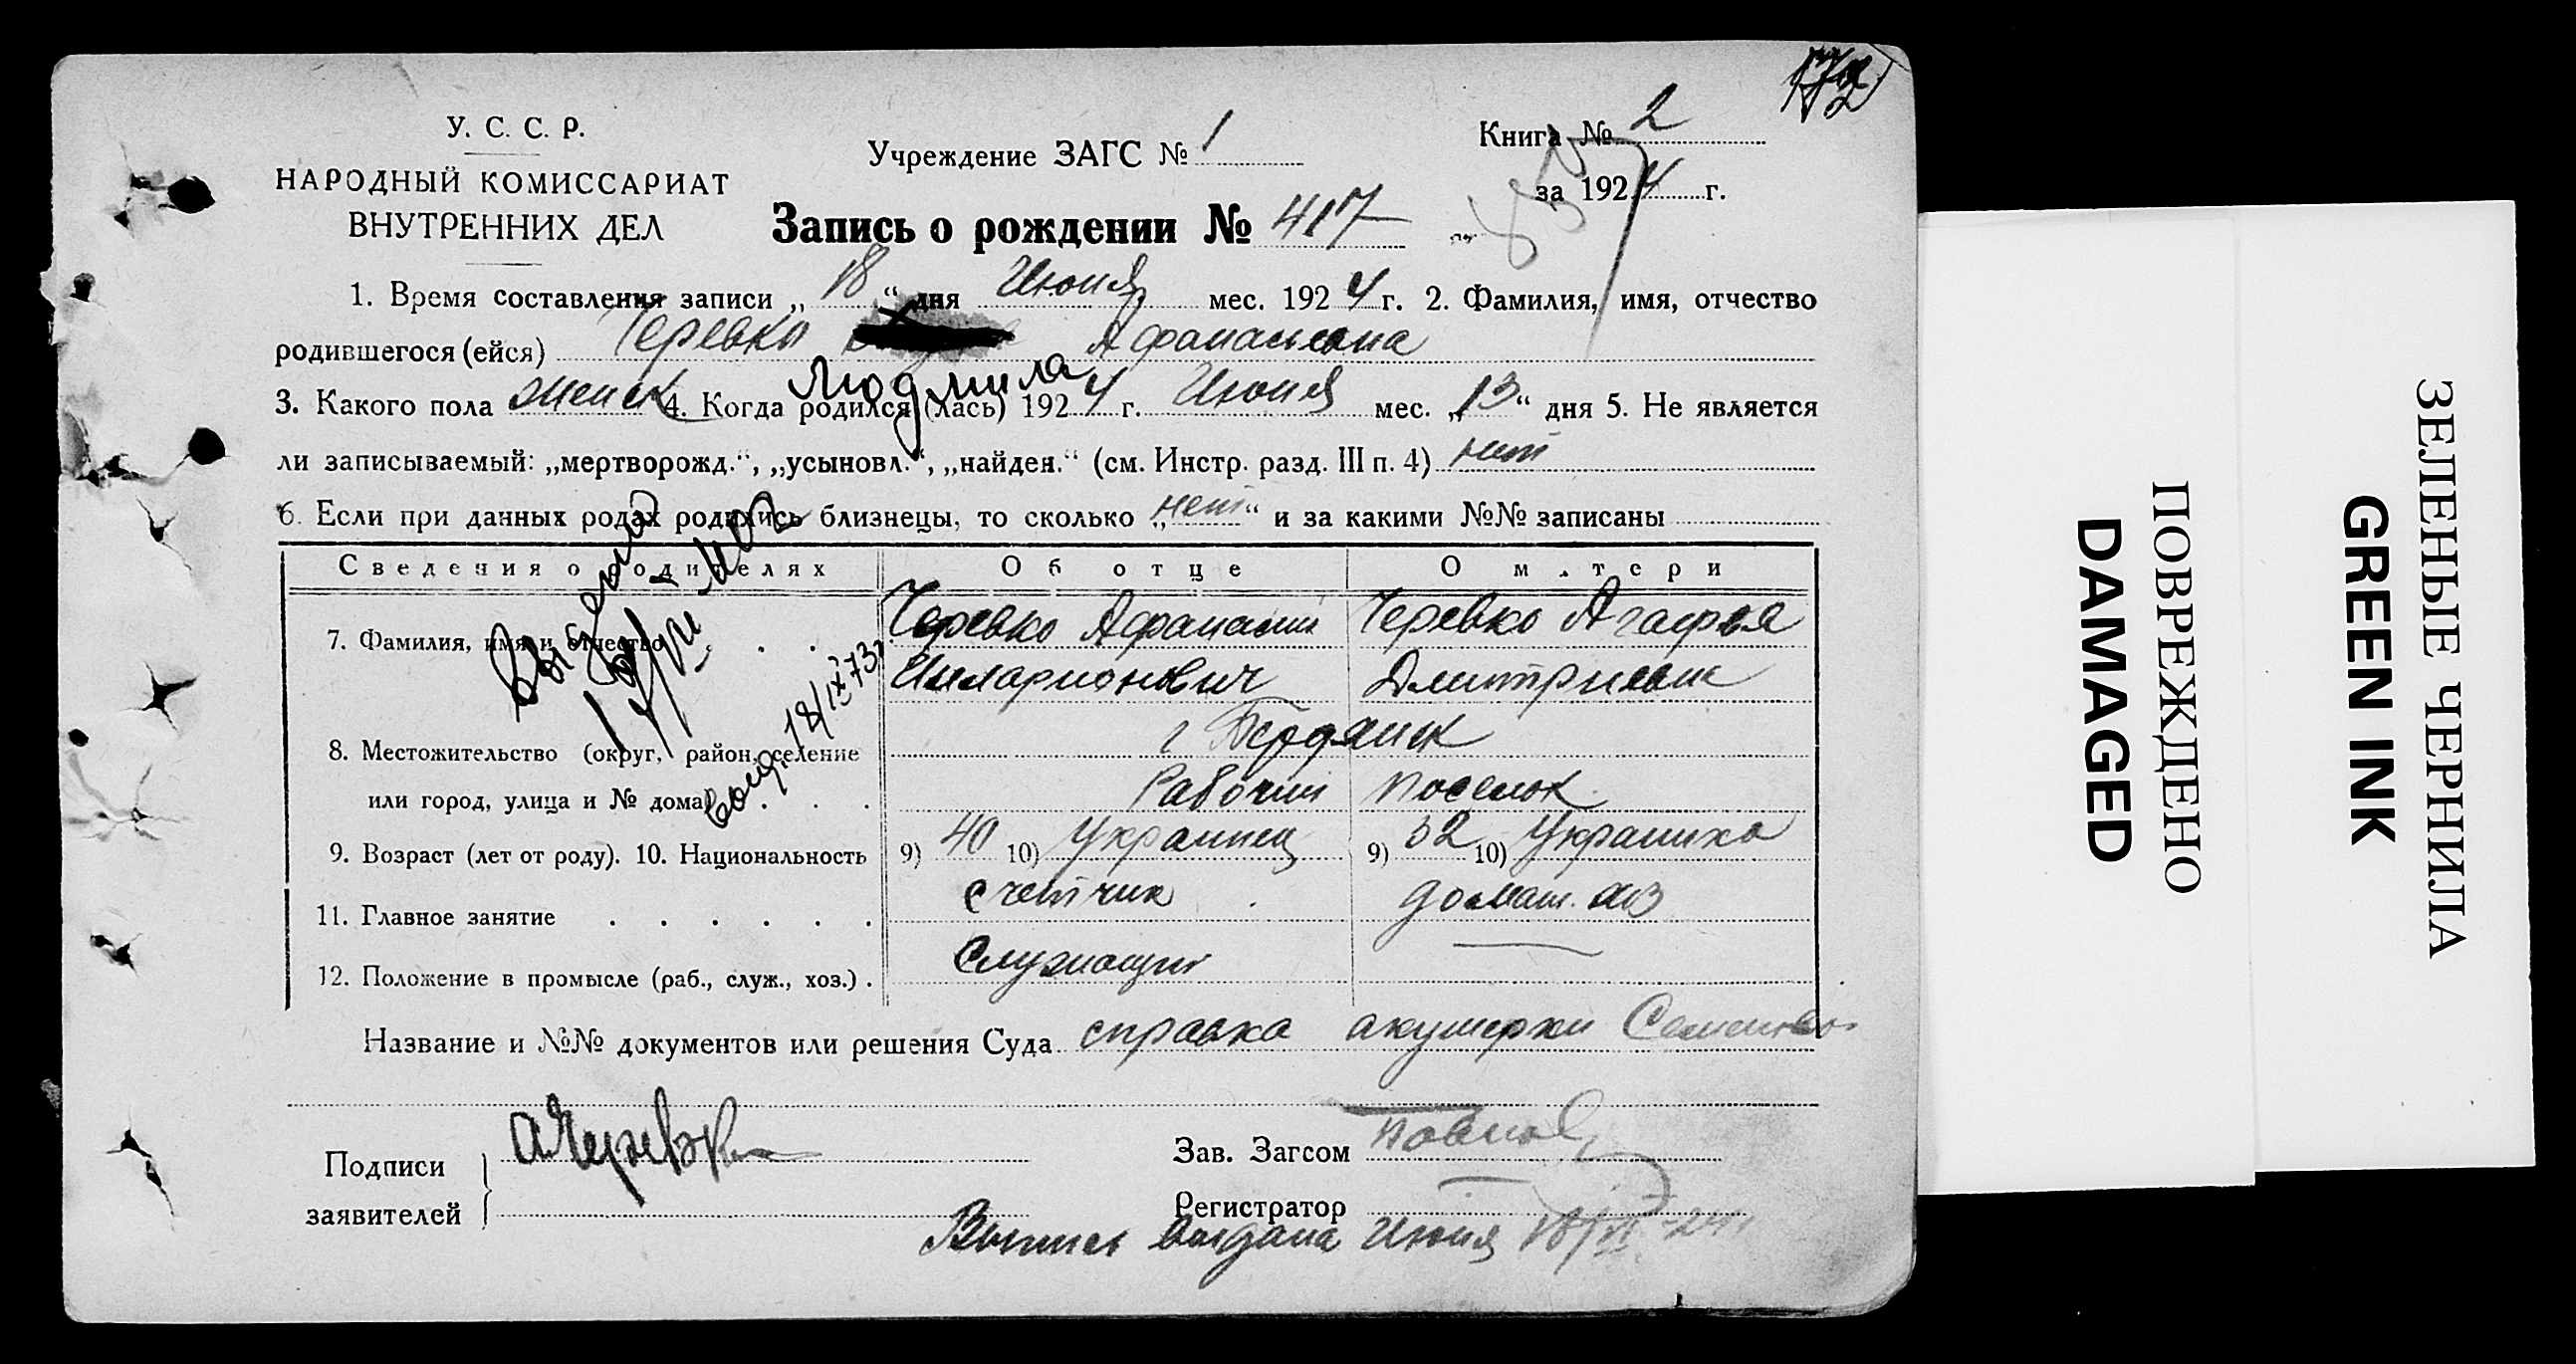 172
У. С. С. Р.
НАРОДНЫЙ КОМИССАРИАТ
ВНУТРЕННИХ ДЕЛ
Учреждение ЗАГС № 1
Книга № 2
за 1924 г.
Запись о рождении № 417
1. Время составления записи „18“ дня Июня мес. 1924 г. 2. Фамилия, имя, отчество
родившегося (ейся) Черевко Афанасьевна
Людмила
3. Какого пола женск 4. Когда родился (лась) 1924 г. Июня мес. „13“ дня 5. Не является
ли записываемый: „мертворожд.“, „усыновл.“, „найден.“ (см. Инстр. разд. III п. 4) нет
6. Если при данных родах родились близнецы, то сколько „нет“ и за какими №№ записаны
Сведения о родителях Об отце О матери
7. Фамилия, имя и отчество . . . Черевко Афанасий Черевко Агафья
Илларионович Дмитриевна
8. Местожительство (округ, район, селение г Бердянск
или город, улица и № дома) . . . Рабочий поселок
9. Возраст (лет от роду). 10. Национальность 9) 40 10) Украинец 9) 32 10) Украинка
11. Главное занятие . . . . . . счетчик домаш. хоз
12. Положение в промысле (раб., служ., хоз.) . Служащий —
18/IX 73г
Название и №№ документов или решения Суда справка акушерки Семеновой
Подписи
заявителей
АЧеревко
Зав. Загсом
Регистратор
Выпись выдана Июня 18/VI-24
ПОВРЕЖДЕНО
DAMAGED
ЗЕЛЕНЫЕ ЧЕРНИЛА
GREEN INK